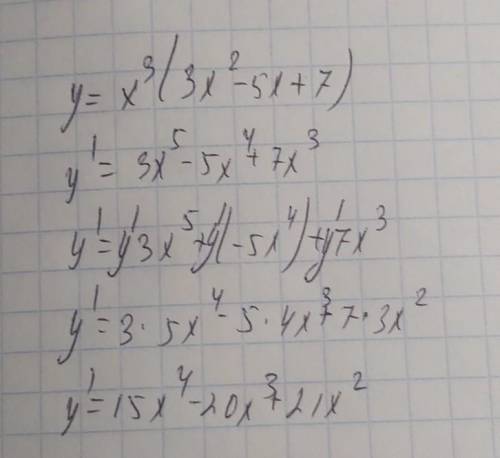 y = x³(3x² - 5x + 7)
y' = 3x⁵ - 5x⁴ + 7x³
y' = y'3x⁵ + y'(-5x⁴) + y'7x³
y' = 3 · 5x⁴ - 5 · 4x³ + 7 · 3x²
y' = 15x⁴ - 20x³ + 21x²